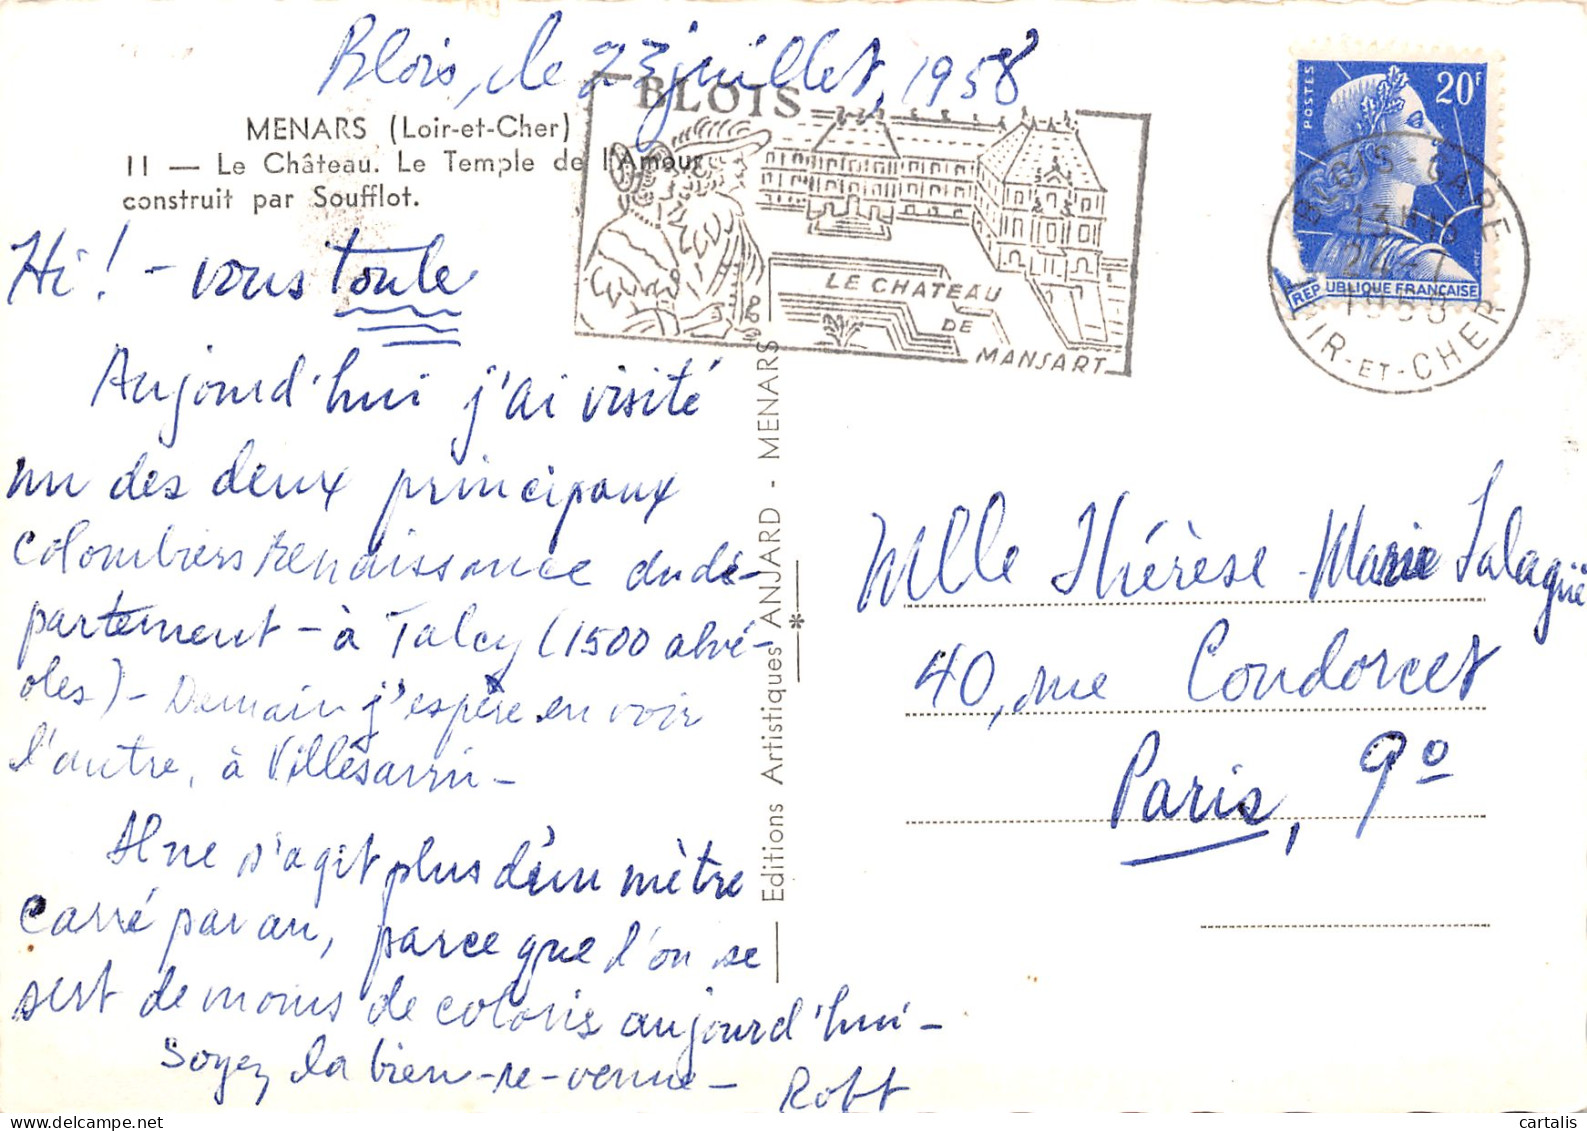 Blois, le 23 juillet, 1958
MENARS (Loir-et-Cher)
11 — Le Château. Le Temple de l'Amour
construit par Soufflot.
Hi! - vous toute
Aujourd'hui j'ai visité
un des deux principaux
colombiers renaissance du dé-
partement - à Talcy (1500 alvé-
oles) - Demain j'espère en voir
l'autre, à Villesavin -
Il ne s'agit plus d'un mètre
carré par an, parce que l'on se
sert de moins de coloris aujourd'hui -
Soyez la bien-re-venue - Robt
Editions Artistiques ANJARD - MENARS
BLOIS
LE CHATEAU
DE
MANSART
POSTES
20F
REPUBLIQUE FRANÇAISE
BLOIS-GARE
13H15
24-7
1958
LOIR-ET-CHER
Mlle Thérèse-Marie Salagué
40, rue Condorcet
Paris, 9º
cartalis